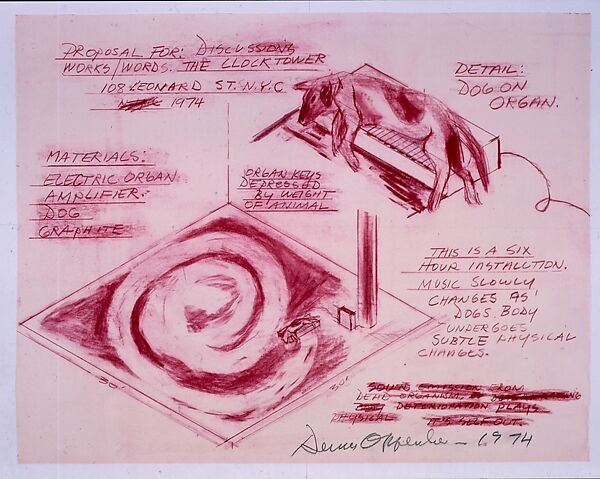 PROPOSAL FOR: DISCUSSIONS
WORKS/WORDS. THE CLOCKTOWER
108 LEONARD ST. N.Y.C
1974
DETAIL:
DOG ON
ORGAN.
MATERIALS:
ELECTRIC ORGAN
AMPLIFIER.
DOG
GRAPHITE
ORGAN KEYS
DEPRESSED
BY WEIGHT
OF ANIMAL
THIS IS A SIX
HOUR INSTALLTION.
MUSIC SLOWLY
CHANGES AS
DOGS. BODY
UNDERGOES
SUBTLE PHYSICAL
CHANGES.
30'
30'
SOUND EMISSION FROM
DEAD ORGANISM,
DETERIORATION PLAYS
PHYSICAL ITSELF OUT.
Dennis Oppenheim - 1974